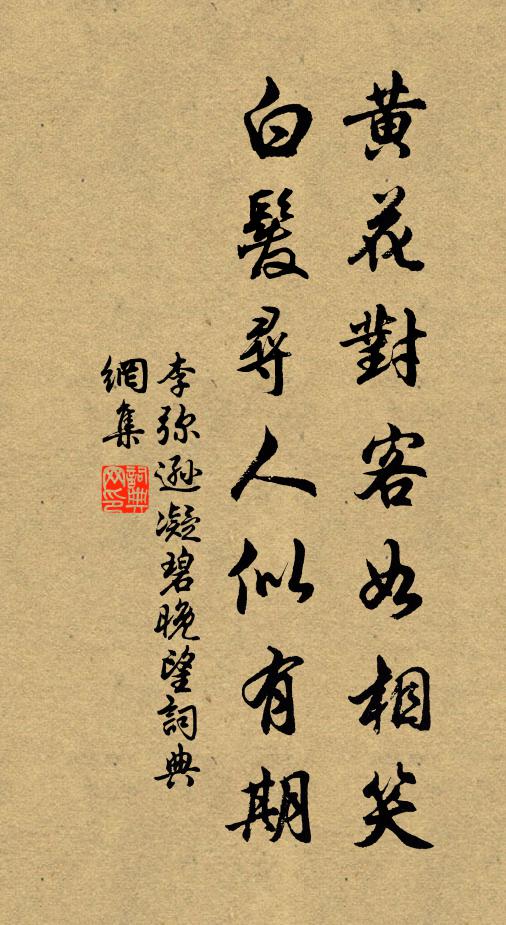 黃花對客如相笑
白髮尋人似有期
李弥遜凝碧晚望詞典
網集
詞典網印